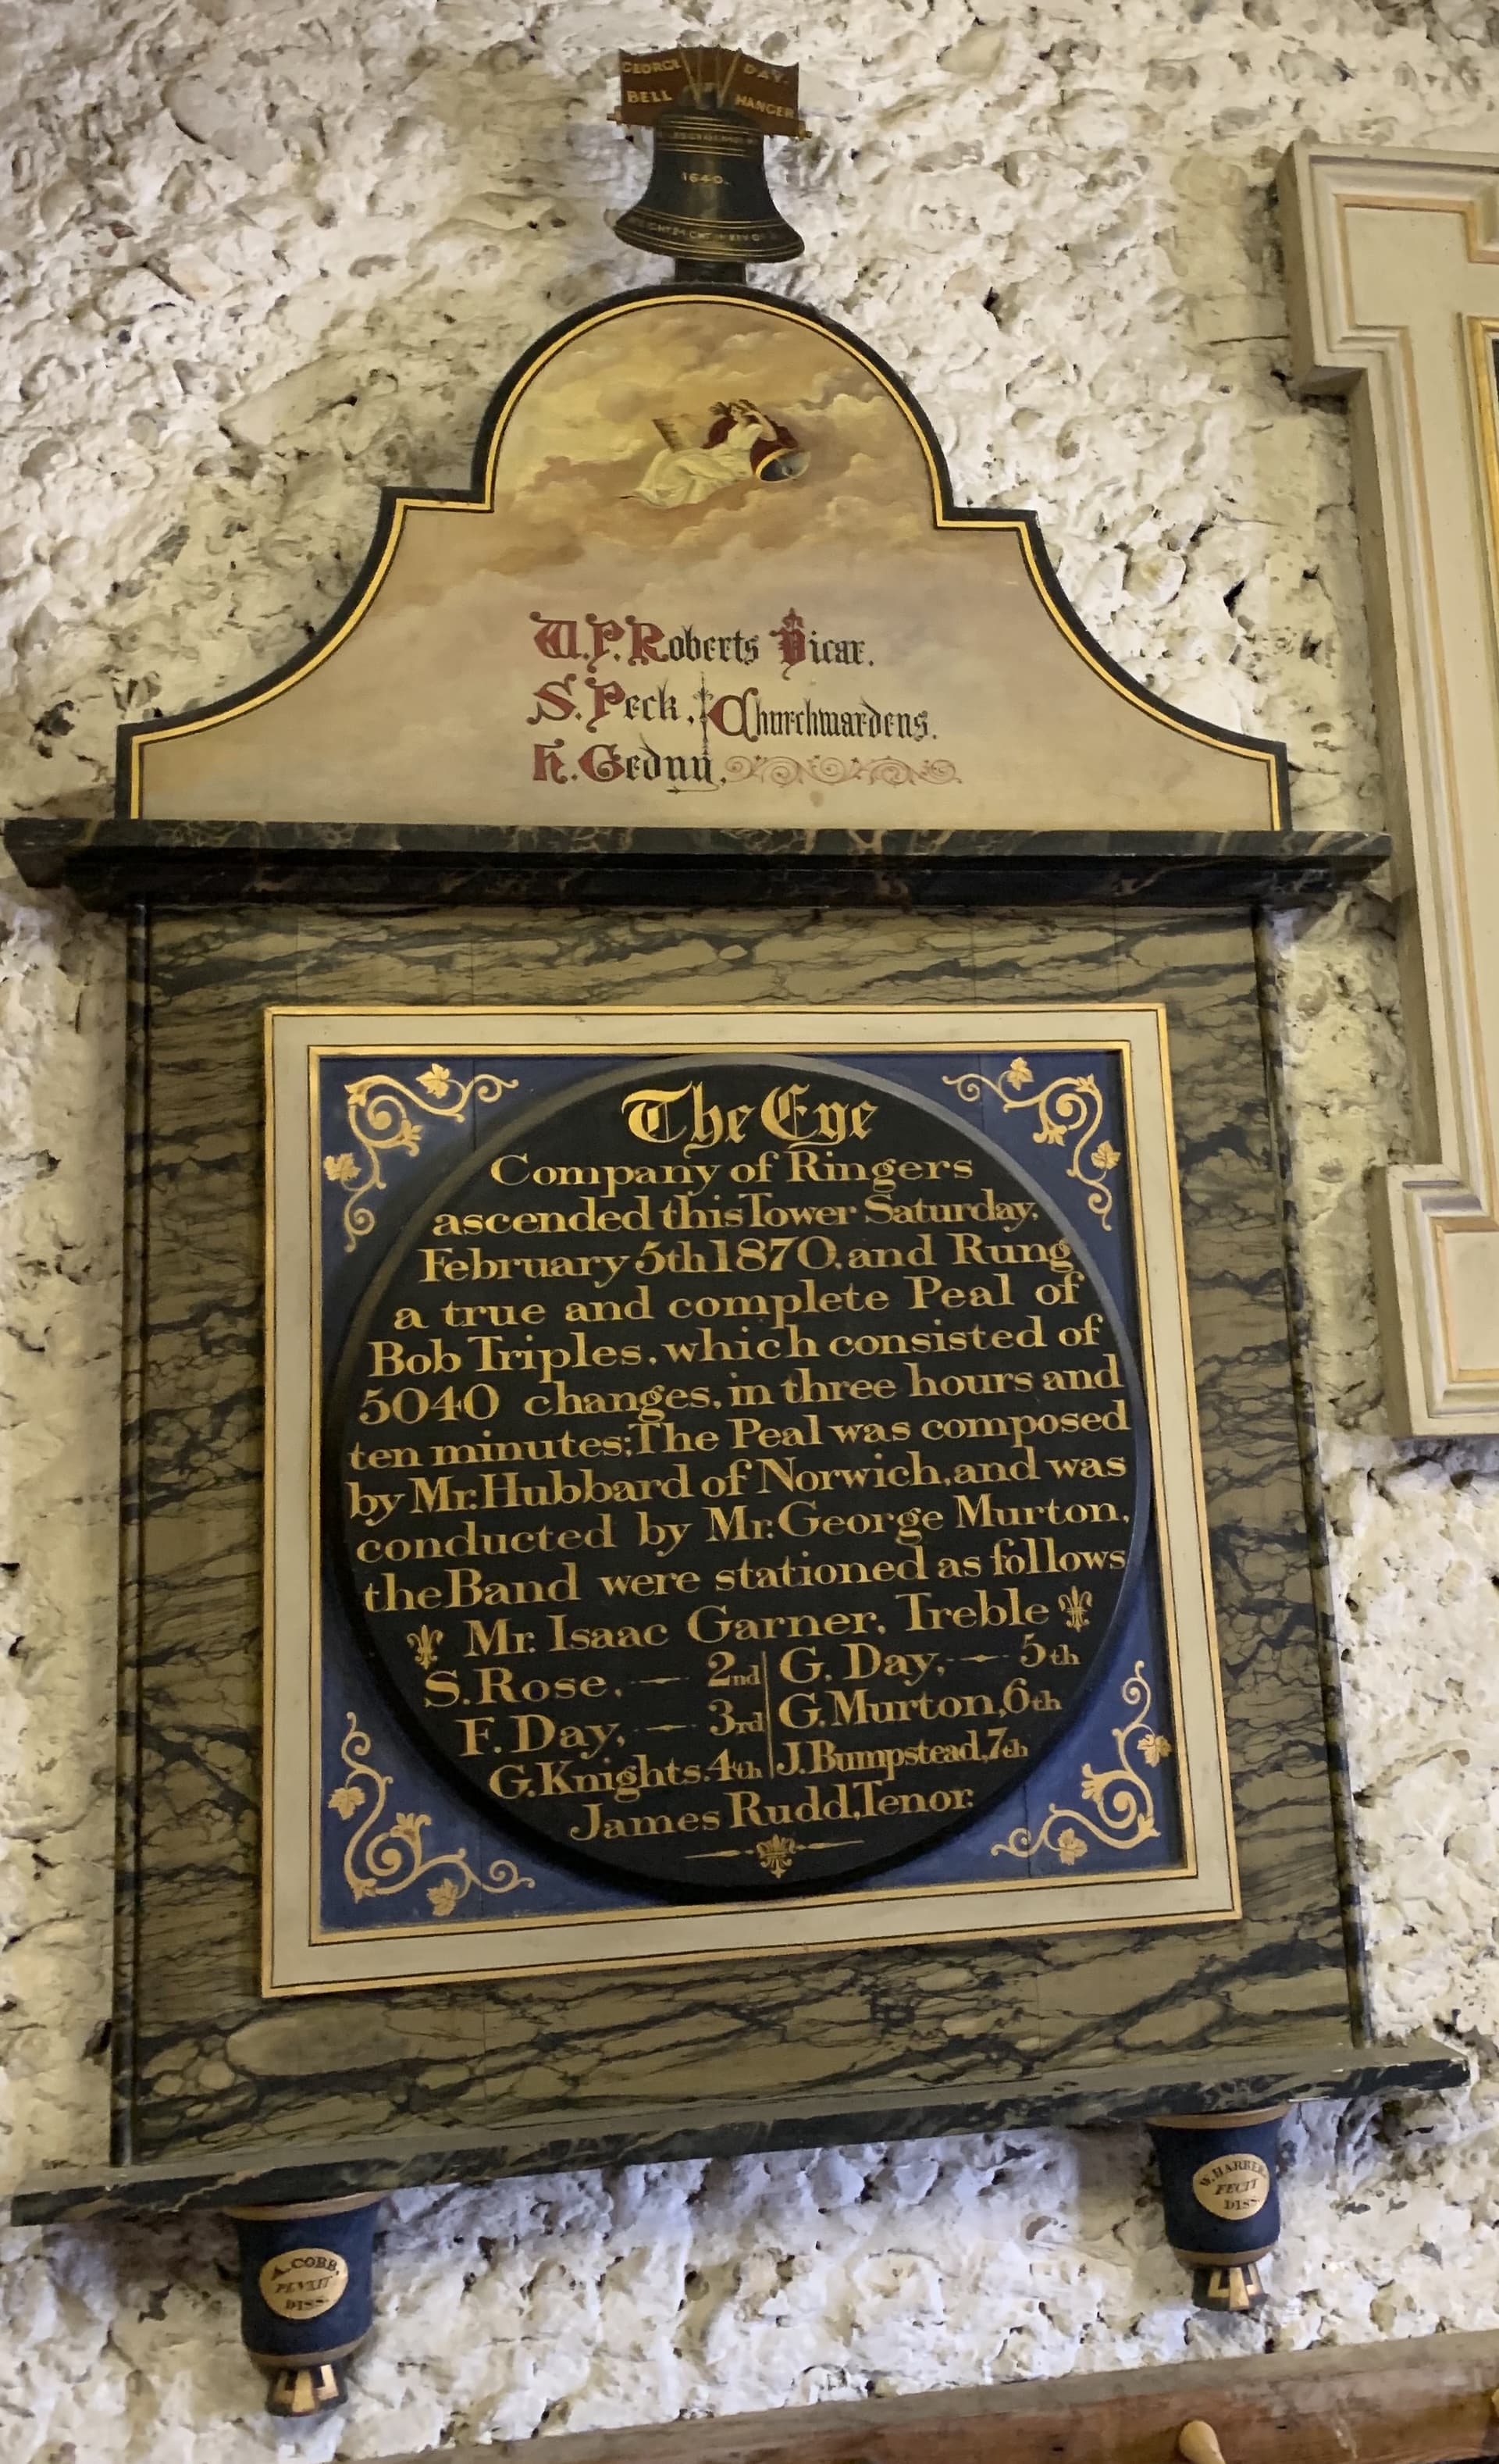 GEORGE DAY.
BELL HANGER
1640.
W.P. Roberts Vicar.
S. Peck. Churchwardens.
H. Gedny.
The Eye
Company of Ringers
ascended this Tower Saturday.
February 5th 1870. and Rung
a true and complete Peal of
Bob Triples. which consisted of
5040 changes. in three hours and
ten minutes; The Peal was composed
by Mr. Hubbard of Norwich, and was
conducted by Mr. George Murton.
the Band were stationed as follows
Mr. Isaac Garner. Treble
S. Rose. — 2nd G. Day. — 5th
F. Day. — 3rd G. Murton, 6th
G. Knights. 4th J. Bumpstead, 7th
James Rudd, Tenor.
A. COBB,
PINXIT
DISS.
W. HARBER,
FECIT
DISS.